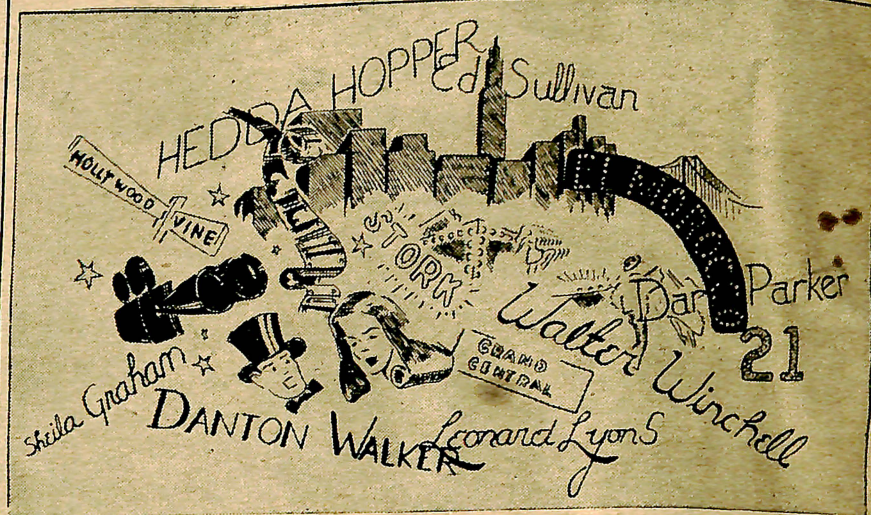 HEDDA HOPPER
Ed Sullivan
HOLLYWOOD
VINE
STORK
EL MOROCCO
Dan Parker
21
Walter Winchell
GRAND
CENTRAL
Sheila Graham
DANTON WALKER
Leonard Lyons